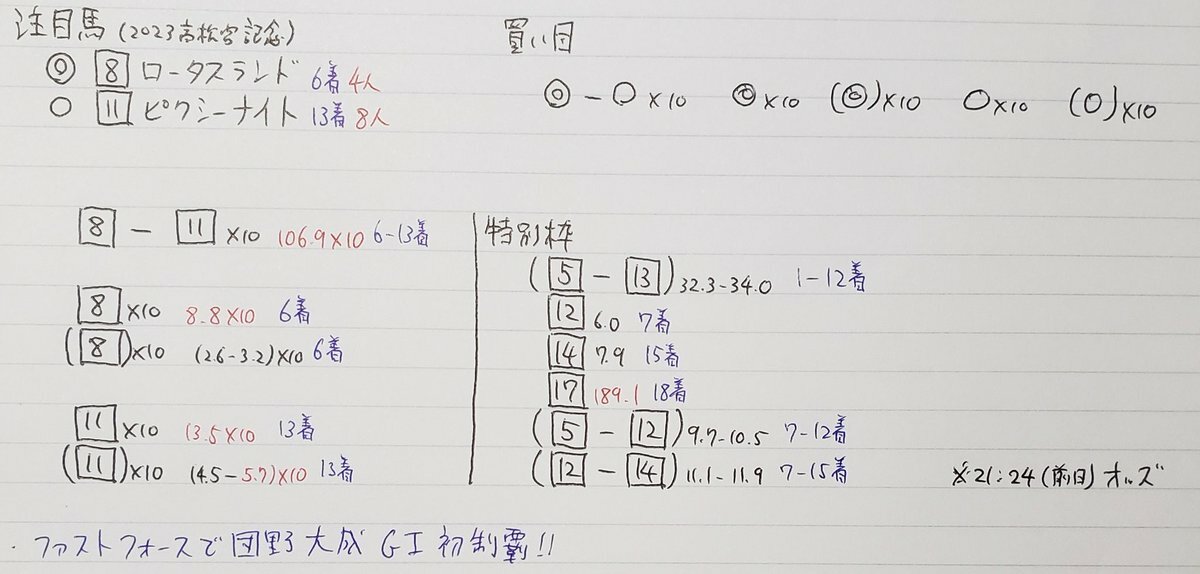 注目馬 (2023高松宮記念)
◎ 8 ロータスランド 6着 4人
○ 11 ピクシーナイト 13着 8人
買い目
◎-○×10 ◎×10 (◎)×10 ○×10 (○)×10
8 - 11 ×10 106.9×10 6-13着
8 ×10 8.8×10 6着
(8)×10 (2.6-3.2)×10 6着
11 ×10 13.5×10 13着
(11)×10 (4.5-5.7)×10 13着
特別枠
(5 - 13) 32.3-34.0 1-12着
12 6.0 7着
14 7.9 15着
17 189.1 18着
(5 - 12) 9.7-10.5 7-12着
(12 - 14) 11.1-11.9 7-15着
※21:24(前日)オッズ
・ファストフォースで団野大成GI初制覇!!